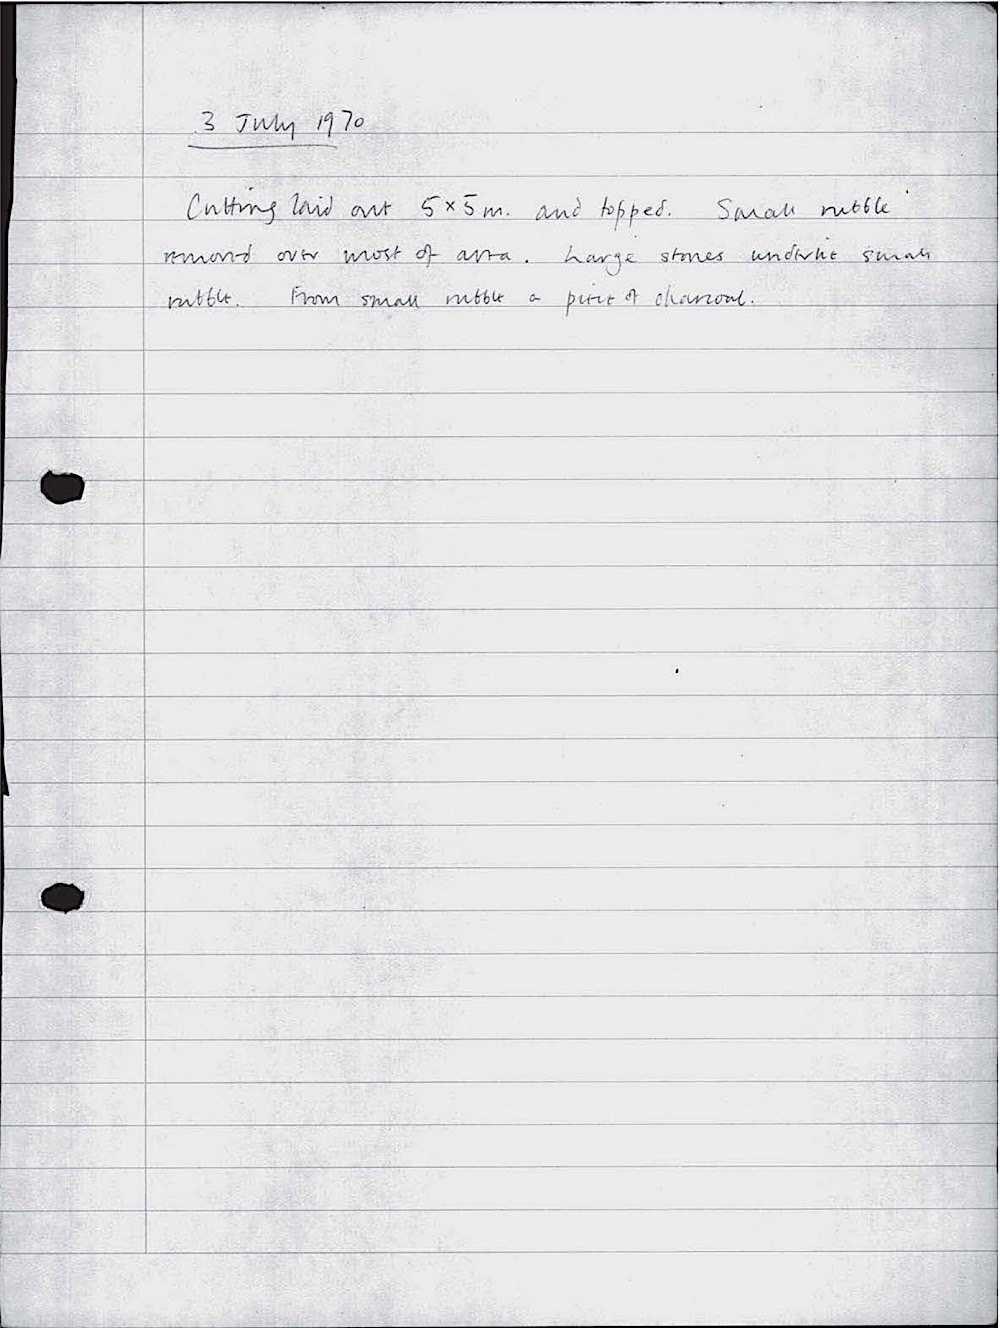 3 July 1970
Cutting laid out 5 × 5 m. and topped. Small rubble
removed over most of area. Large stones underlie small
rubble. From small rubble a piece of charcoal.